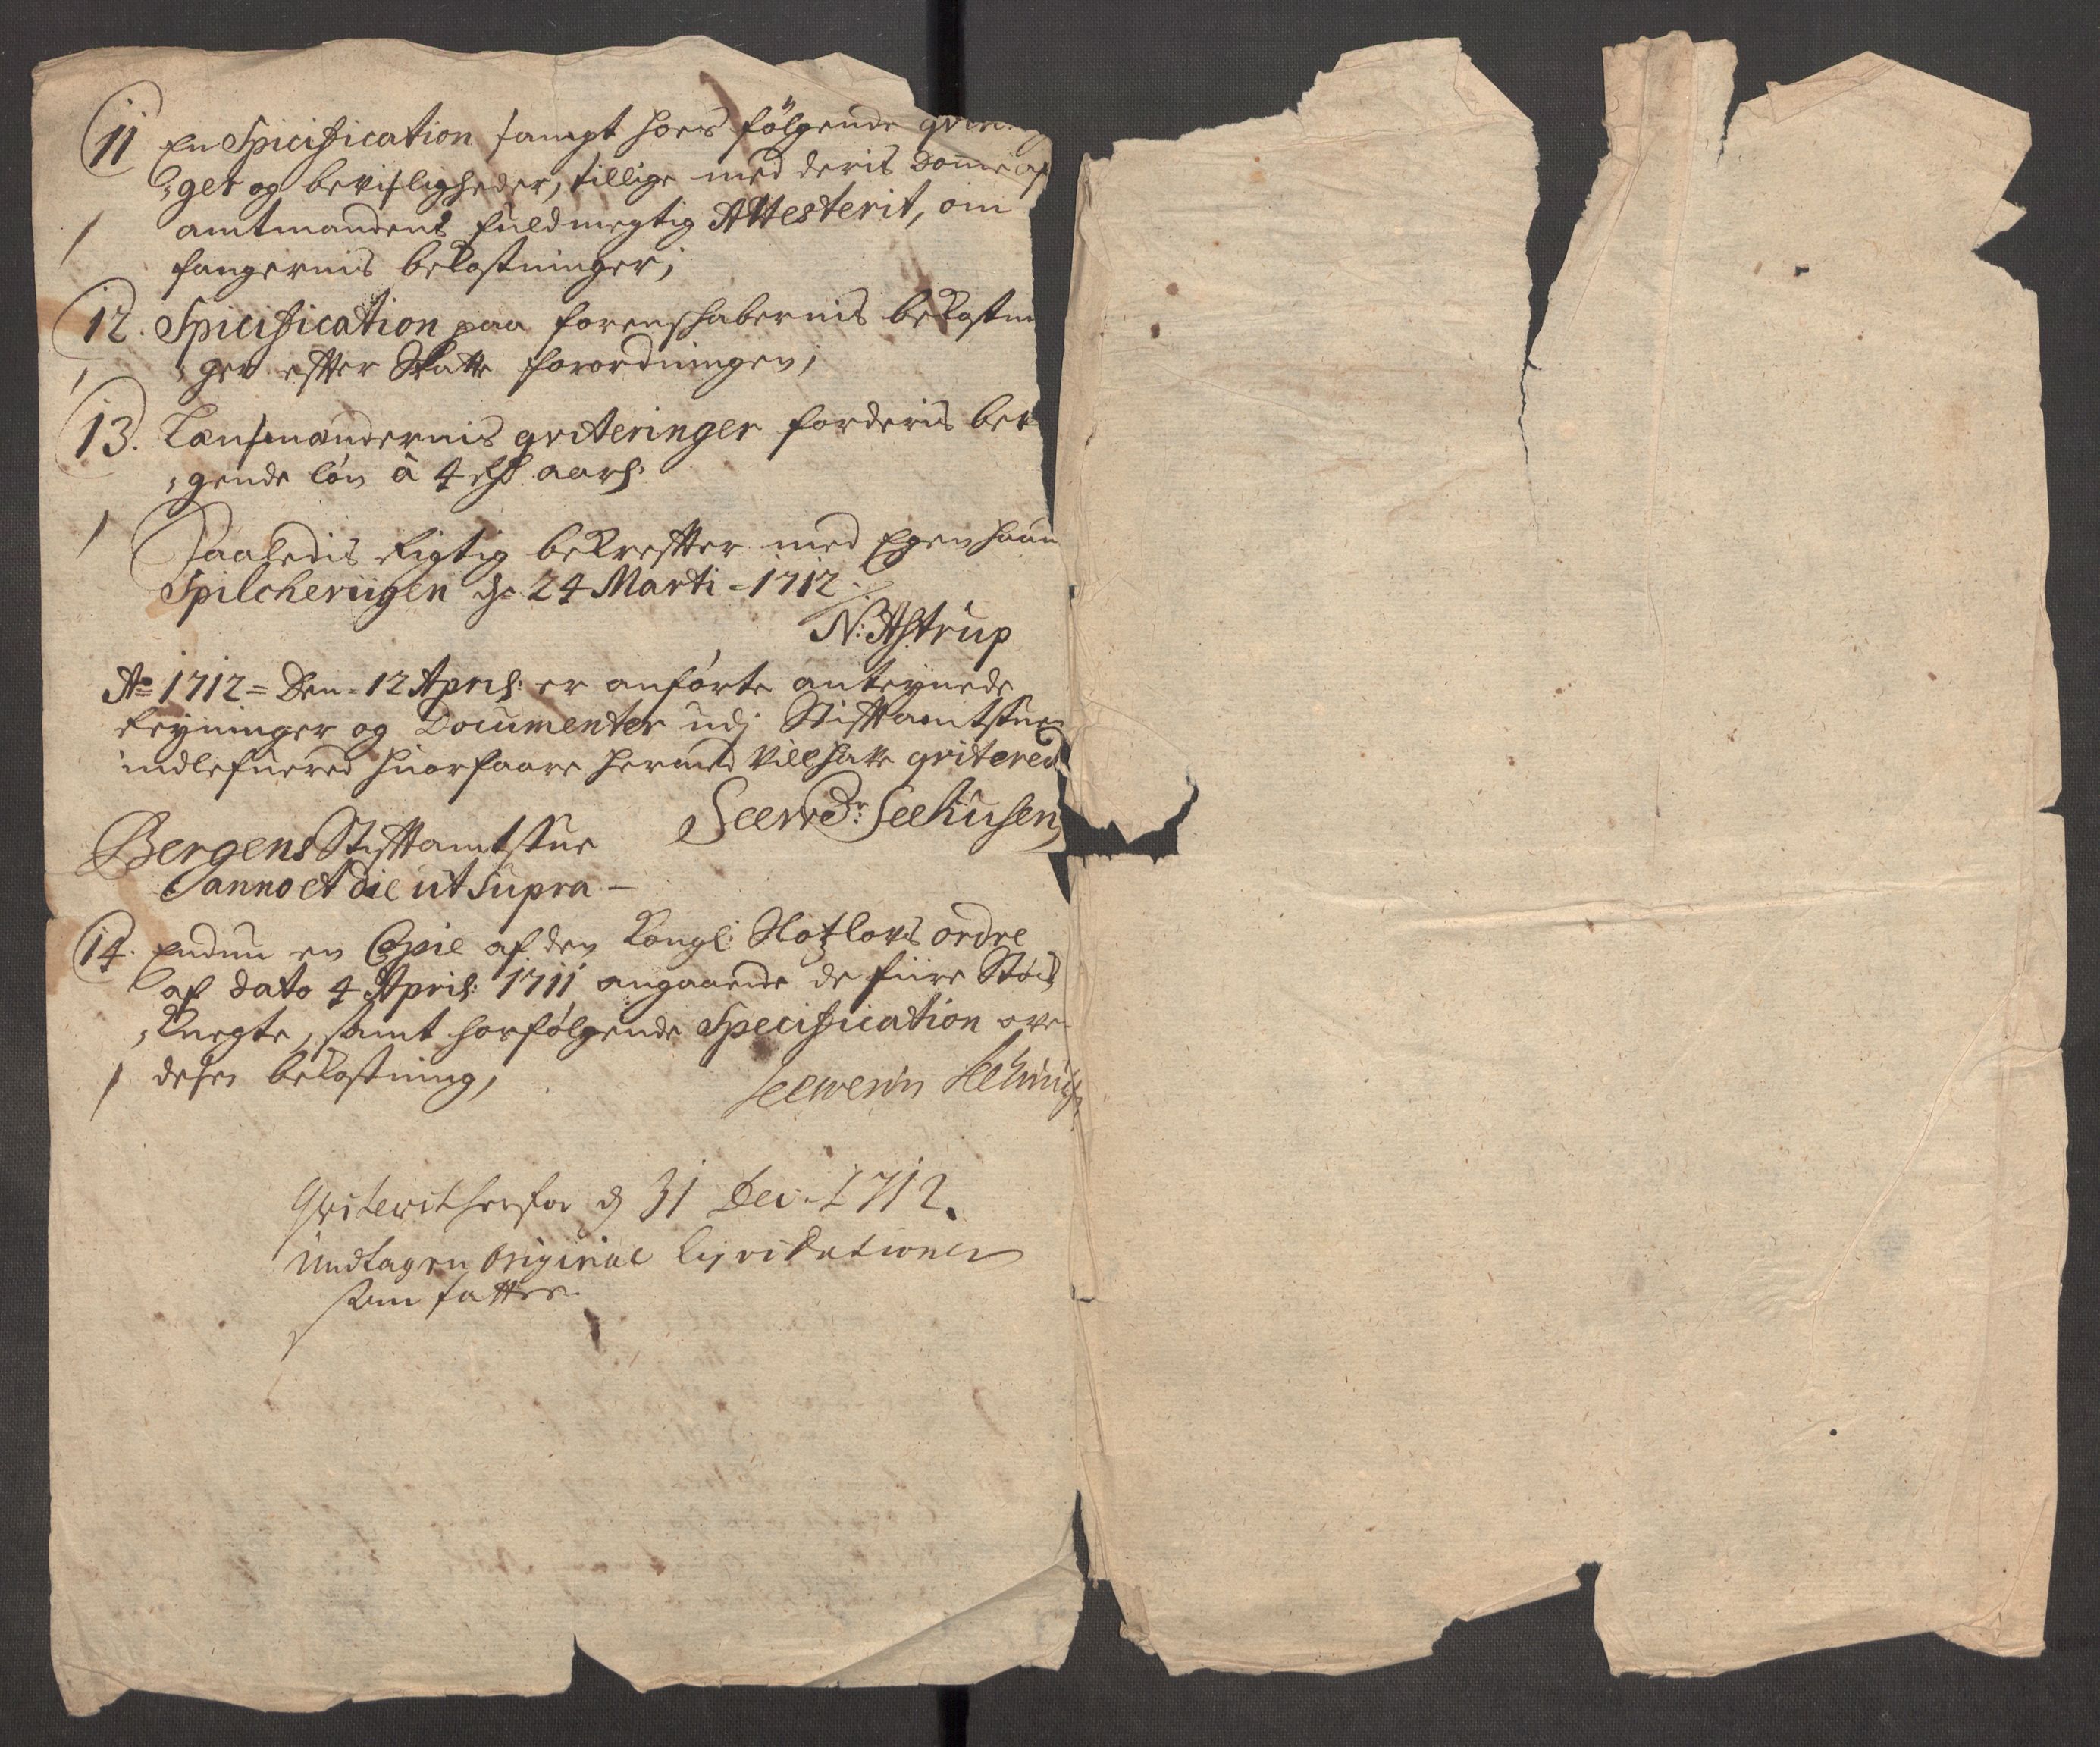 11 En Spicification sampt hoes følgende
"ger og bevisligheder, tillige med deris Domme af
amtmandens fuldmegtig Attesterit, om
fangernis bekostninger;
12. Spicification paa forenschabernis bekostnin
"ger effter Skatte forordningen;
13. Lensmændernis qviteringer for deris
"gende løn â 4 rdr. aarl:
Saaledis rigtig bekreffter med Egen haan
Spilcheriigen d: 24 Marti - 1712
N: Astrup
Ao 1712 = Den - 12 April: er anførte anteignede
Regninger og Documenter udj Stifftamtstuen
indlefuered huorfaare hermed vill hafve qvitered
Seewr: Seehusen,
Bergens Stifftamtstue
anno et die ut supra -
14. Endnu en Copie af den Kongl: Slotzlovs ordre
af dato 4 April: 1711 angaaende de fiire
"knegte, samt hosfølgende Specification ove
desen bekostning,
Seewerin Seehusen
Qviterit herfor d 31 Dec. 1712.
Undtagen Original liqvidationer
som fattes.